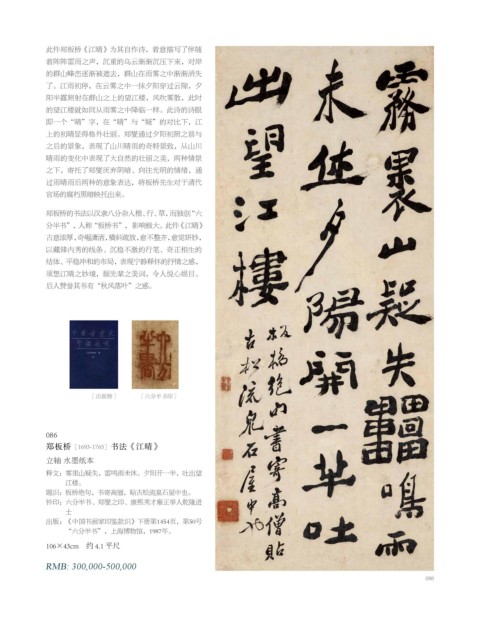 此件郑板桥《江晴》为其自作诗，着意描写了伴随
着阵阵雷雨之声，沉重的乌云渐渐沉压下来，对岸
的群山峰峦逐渐被遮去，群山在雨雾之中渐渐消失
了。江雨初停，在云雾之中一抹夕阳穿过云隙，夕
阳半露照射在群山之上的望江楼，风吹雾散，此时
的望江楼就如同从雨雾之中降临一样。此诗的诗眼
即一个“晴”字，在“晴”与“疑”的对比下，江
上的初晴显得格外壮丽。郑燮通过夕阳初照之前与
之后的景象，表现了山川晴雨的奇特景致，从山川
晴雨的变化中表现了大自然的壮丽之美，两种情景
之下，寄托了郑燮厌弃阴暗、向往光明的情绪，通
过雨晴雨后两种的意象表达，将板桥先生对于清代
官场的腐朽黑暗映托出来。
郑板桥的书法以汉隶八分杂入楷、行、草，而独创“六
分半书”，人称“板桥书”，影响极大。此件《江晴》
古意浓厚，奇崛潇洒，横斜疏放，愈不整齐，愈觉妍妙，
以藏锋内秀的线条、沉稳不激的行笔、奇正相生的
结体、平稳冲和的布局，表现宁静释怀的抒情之感，
项想江晴之妙境，据先辈之美词，令人悦心娱目。
后人赞誉其书有“秋风落叶”之感。
霧裹山疑失雷鳴雨
未休夕陽開一半吐
出望江樓
板橋絶句書寄高僧貼
古松流泉石屋中也
［出版物］
［六分半书印］
086
郑板桥［1693-1765］书法《江晴》
立轴 水墨纸本
释文：雾里山疑失，雷鸣雨未休。夕阳开一半，吐出望
江楼。
题识：板桥绝句。书寄高僧，贴古松流泉石屋中也。
钤印：六分半书、郑燮之印、康熙秀才雍正举人乾隆进
士
出版：《中国书画家印鉴款识》下册第1454页，第50号
“六分半书”，上海博物馆，1987年。
106×43cm 约 4.1 平尺
RMB: 300,000-500,000
086